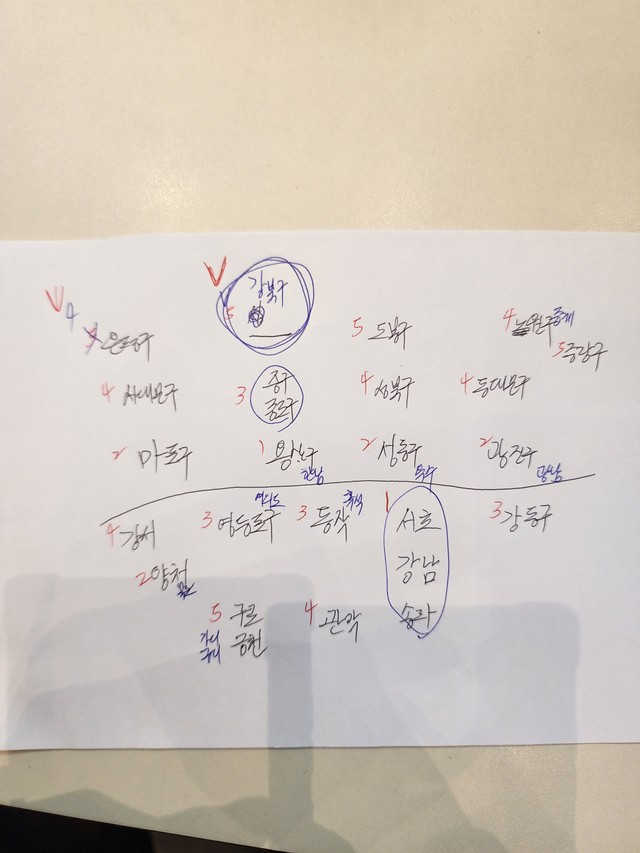 V V
4 은평구
5 강북구
5 도봉구
4 노원구 중계
5 중랑구
4 서대문구
3 중구
종로구
4 성북구
4 동대문구
2 마포구
1 용산구
한남
2 성동구
옥수
2 광진구
광남
4 강서
3 영등포구 여의도
3 동작 흑석
1 서초
강남
송파
3 강동구
2 양천
목동
5 구로
가디
구디 금천
4 관악